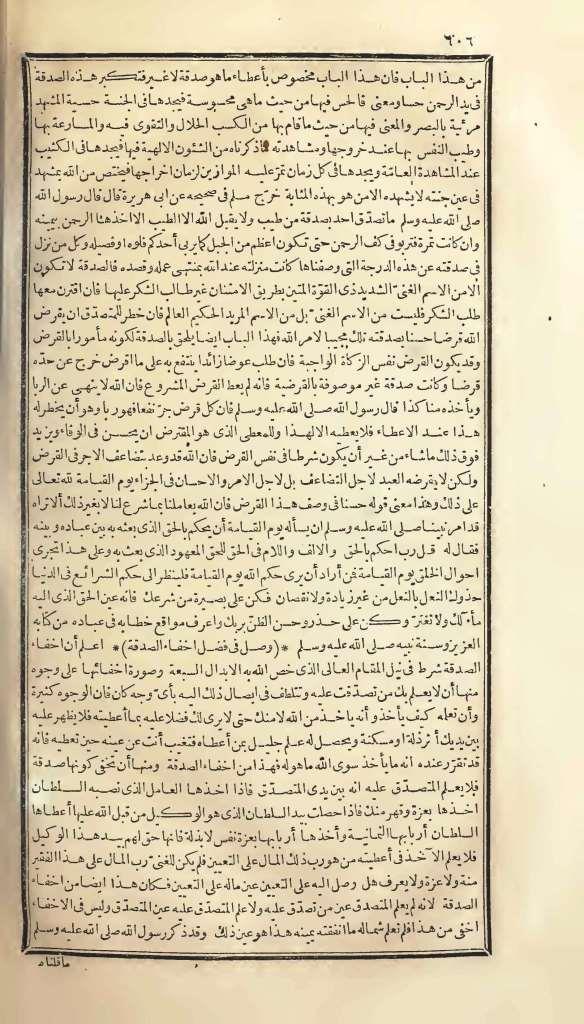 ٦٠٦
من هذا الباب فان هذا الباب مخصوص بأعطاء ما هو صدقة لا غير فتكبر هذه الصدقة
فى يد الرحمن حسا ومعنى فالحس فيها من حيث ما هى محسوسة فيجدها فى الجنة حسية المشهد
مرئية بالبصر والمعنى فيها من حيث ما قام بها من الكسب الحلال والتقوى فيه والمسارعة بها
وطيب النفس بها عند خروجها ومشاهدته ماذكرناه من الشئون الالهية فيها فيجدها فى الكثيب
عند المشاهدة العامّة ويجدها فى كل زمان تمرّ عليه الموازين لزمان اخراجها فيختص من الله بمشهد
فى عين جنته لا يشهده الا من هو بهذه المثابة خرج مسلم فى صحيحه عن ابى هريرة قال قال رسول الله
صلى الله عليه وسلم ما تصدّق احد بصدقة من طيب ولا يقبل الله الا الطيب الا اخذها الرحمن بيمينه
وان كانت تمرة فتربو فى كف الرحمن حتى تكون اعظم من الجبل كما يربى أحدكم فلوه او فصيله وكل من نزل
فى صدقته عن هذه الدرجة التى وصفناها كانت منزلته عند الله بمنتهى عمله وقصده فالصدقة لا تكون
الا من الاسم الغنىّ الشديد ذى القوّة المتين بطريق الامتنان غير طالب الشكر عليها فان اقترن معها
طلب الشكر فليست من الاسم الغنىّ بل من الاسم المريد الحكيم العالم فان خطر للمتصدّق ان يقرض
الله قرضا حسنا بصدقته تلك مجيبا لامر الله فهذا الباب ايضا يلحق بالصدقة لكونه مأمورا بالقرض
وقد يكون القرض نفس الزكاة الواجبة فان طلب عوضا زائدا ينتفع به على ما اقرض خرج عن حدّه
قرضا وكانت صدقة غير موصوفة بالقرضية فانه لم يعط القرض المشروع فان الله لا ينهى عن الربا
ويأخذه منا كذا قال رسول الله صلى الله عليه وسلم فان كل قرض جرّ نفعا فهو ربا وهو أن يخطر له
هذا عند الاعطاء فلا يعطيه الا لهذا وللمعطى الذى هو المقترض ان يحسن فى الوفاء ويزيد
فوق ذلك ما شاء من غير أن يكون شرطا فى نفس القرض فان الله قد وعد بتضاعف الاجر فى القرض
ولكن لا يقرضه العبد لاجل التضاعف بل لاجل الامر والاحسان فى الجزاء يوم القيامة لله تعالى
على ذلك وهذا معنى قوله حسنا فى وصف هذا القرض فان الله يعاملنا بما شرع لنا لا بغير ذلك ألا تراه
قد امر نبينا صلى الله عليه وسلم ان يسأله يوم القيامة أن يحكم بالحق الذى بعثه به بين عباده وبينه
فقال له قل رب احكم بالحق والالف واللام فى الحق للحق المعهود الذى بعث به وعلى هذا تجرى
احوال الخلق يوم القيامة فمن أراد أن يرى حكم الله يوم القيامة فلينظر الى حكم الشرائع فى الدنيا
حذوك النعل بالنعل من غير زيادة ولا نقصان فكن على بصيرة من شرعك فانه عين الحق الذى اليه
مآلك ولا تغترّ وكن على حذر وحسن الظنّ بربك واعرف مواقع خطابه فى عباده من كتابه
العزيز وسنة نبيه صلى الله عليه وسلم *(وصل فى فضل اخفاء الصدقة)* اعلم أن اخفاء
الصدقة شرط فى نيل المقام العالى الذى خص الله به الابدال السبعة وصورة اخفائها على وجوه
منها أن لا يعلم بك من تصدّقت عليه وتتلطف فى ايصال ذلك اليه بأىّ وجه كان فان الوجوه كثيرة
وأن تعلمه كيف يأخذ وأنه يأخذ من الله لا منك حتى لا يرى لك فضلا عليه بما أعطيته فلا يظهر عليه
بين يديك أثر ذلة او مسكنة ويحصل له علم جليل بمن أعطاه فتغيب أنت عن عينه حين تعطيه فانه
قد تقرّر عنده انه ما يأخذ سوى الله ما هو له فهذا من اخفاء الصدقة ومنها أن تخفى كونها صدقة
فلا يعلم المتصدّق عليه انه بين يدى المتصدّق فاذا اخذها العامل الذى نصبه السلطان
اخذها بعزة وقهر منك فاذا حصلت بيد السلطان الذى هو الوكيل من قبل الله عليها أعطاها
السلطان أربابها الثمانية وأخذها أربابها بعزة نفس لا بذلة فانها حق لهم بيد هذا الوكيل
فلا يعلم الآخذ فى أعطيته من هو رب ذلك المال على التعيين فلم يكن للغنىّ رب المال على هذا الفقير
منة ولا عزة ولا يعرف هل وصل اليه على التعيين عين ماله على التعيين فكان هذا ايضا من اخفاء
الصدقة لانه لم يعلم المتصدق عين من تصدّق عليه ولا علم المتصدّق عليه عين المتصدّق وليس فى الاخفاء
اخفى من هذا فلم تعلم شماله ما انفقته يمينه هذا هو عين ذلك وقد ذكر رسول الله صلى الله عليه وسلم
ما قلناه